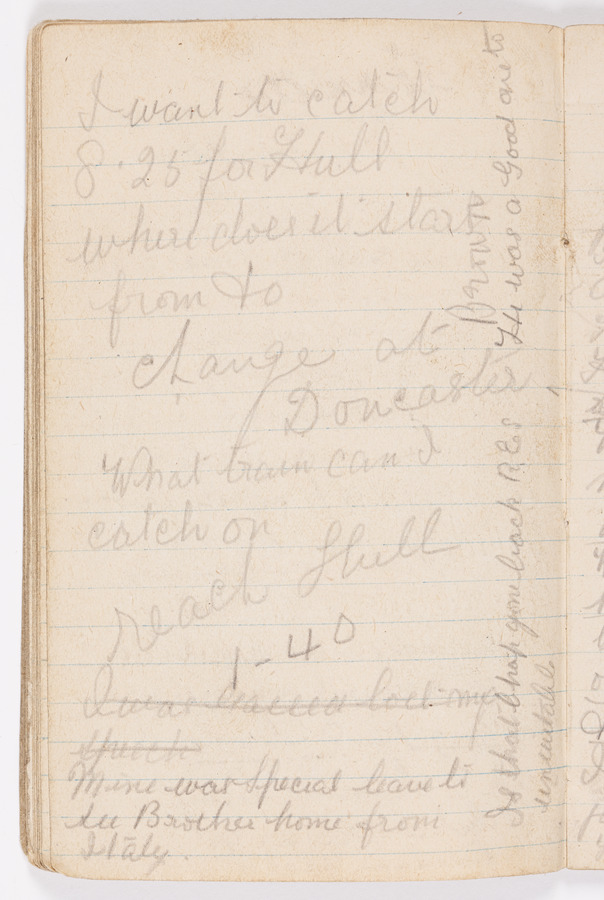 I want to catch
8.25 for Hull
where does it start
from to
change at
Doncaster
What train can I
catch on
reach Hull
1-40
I was lost my
speech
Mine was special leave to
see Brother home from
Italy.
Brown
He was a Good one to
Is that Chap gone back R.E.s
unsuitable